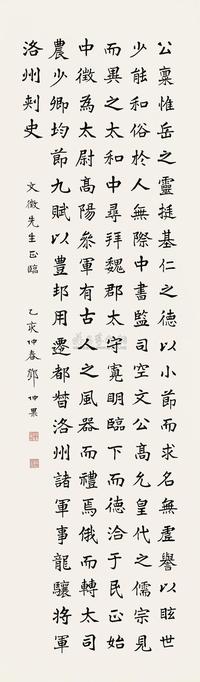 公稟惟岳之靈挺基仁之德以小節而求名無虛譽以眩世
少能和俗於人無際中書監司空文公高允皇代之儒宗見
而異之太和中尋拜魏郡太守寬明臨下而德洽于民正始
中徵為太尉高陽叅軍有古人之風器而禮焉俄而轉太司
農少卿均節九賦以豊邦用遷都督洛州諸軍事龍驤將軍
洛州刺史
文徵先生正臨 乙亥仲春